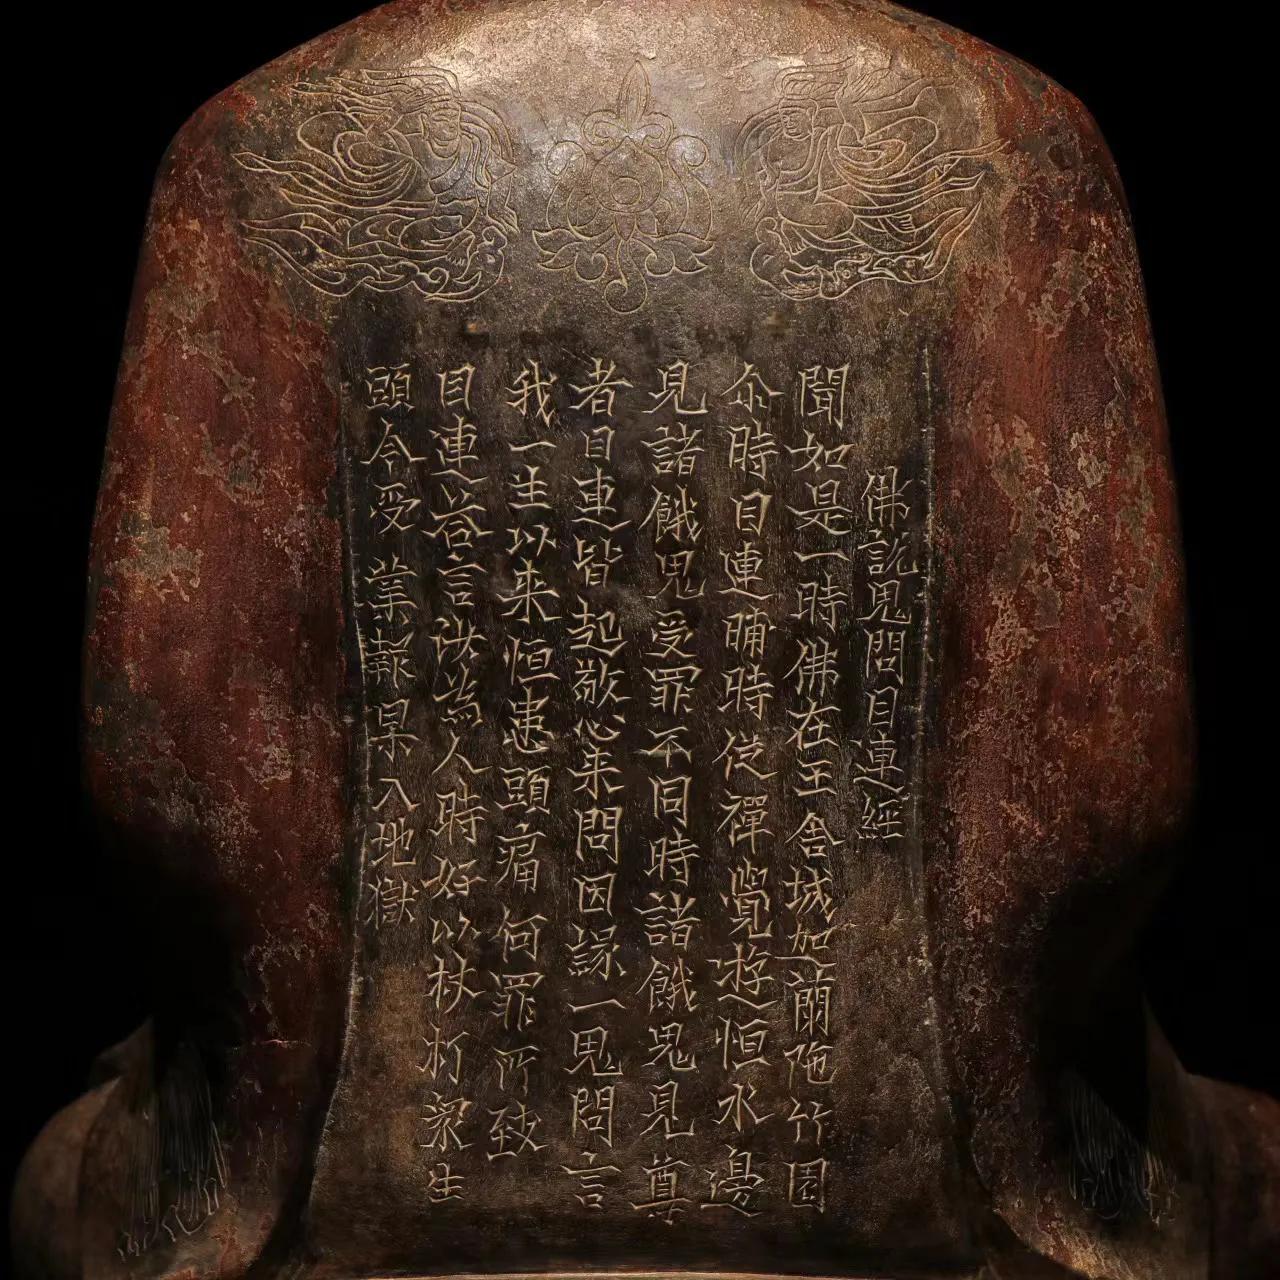 佛說鬼問目連經
聞如是一時佛在王舍城迦蘭陁竹園
尒時目連晡時從禪覺遊恒水邊
見諸餓鬼受罪不同時諸餓鬼見尊
者目連皆起敬心来問因緣一鬼問言
我一生以来恒患頭痛何罪所致
目連荅言汝為人時好以杖打眾生
頭今受業報果入地獄